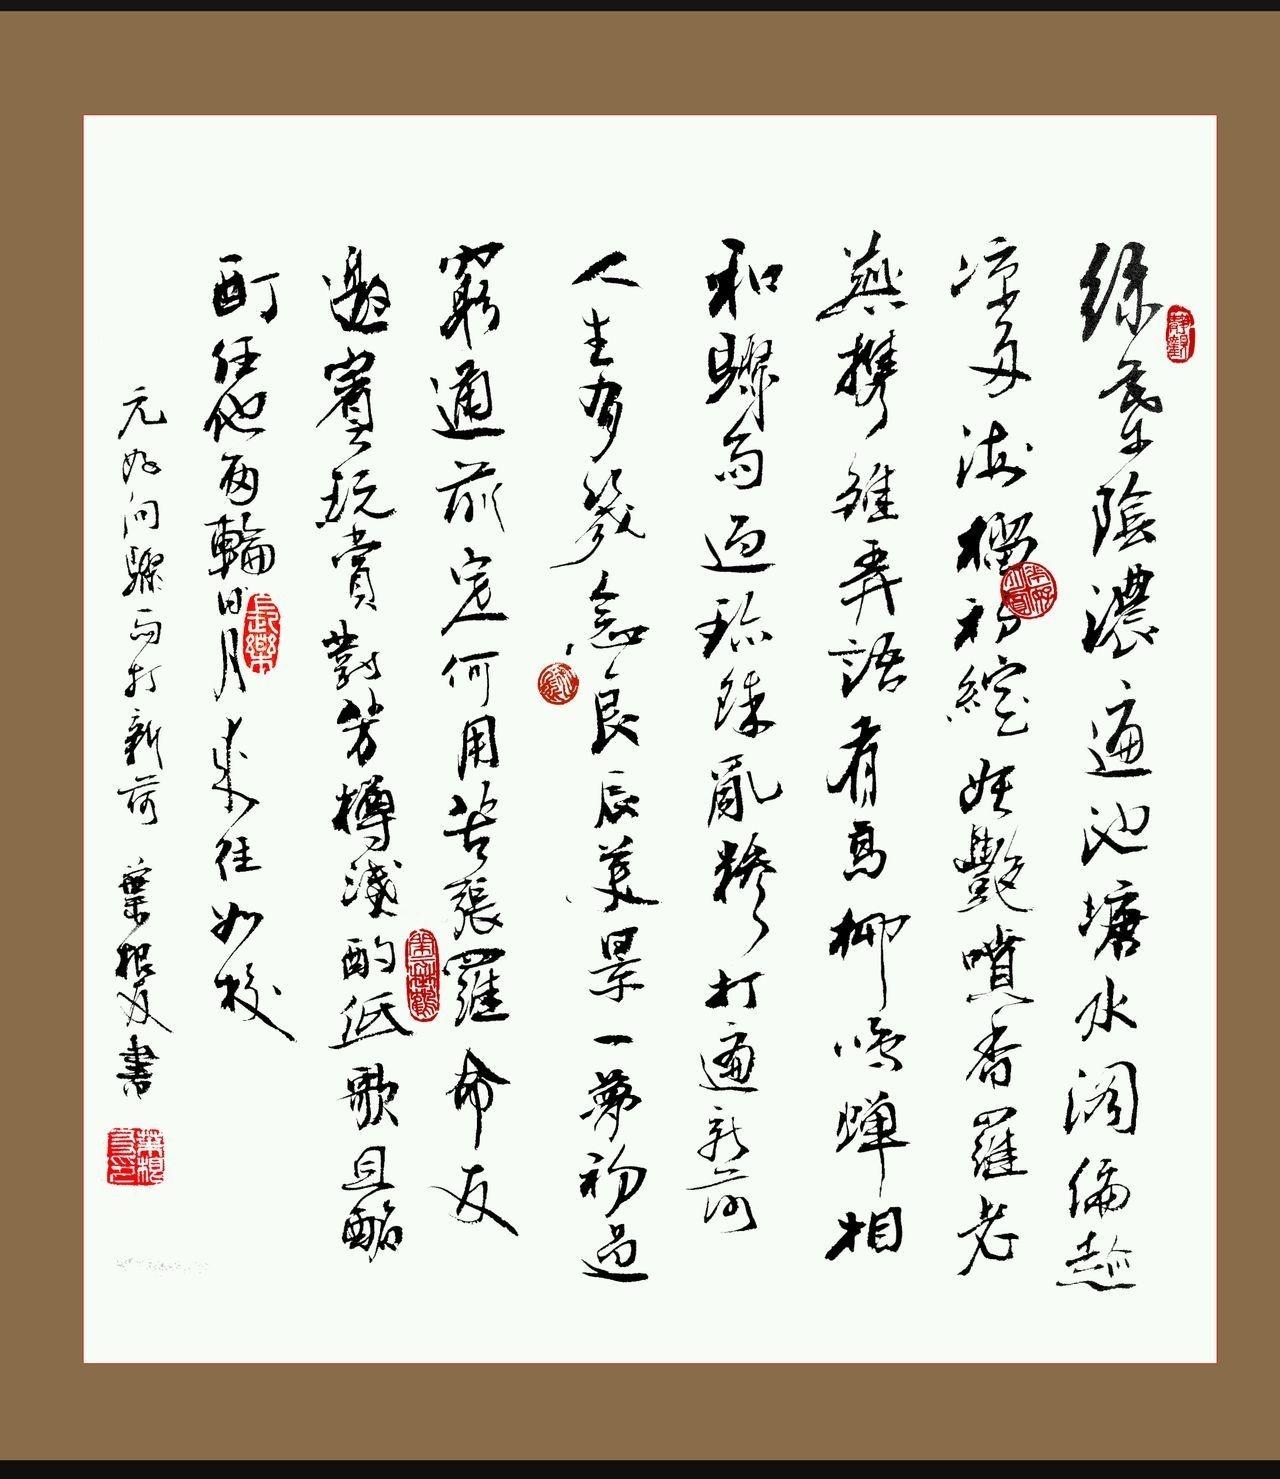 綠葉陰濃遍池塘水閣偏趁
涼多海榴初綻妖艷噴香羅老
燕攜雛弄語有高柳鳴蟬相
和驟雨過珍珠亂糝打遍新荷
人生有幾念良辰美景一夢初過
窮通前定何用苦張羅命友
邀賓玩賞對芳樽淺酌低歌且酩
酊任他兩輪日月來往如梭
元好問驟雨打新荷 葉根友書